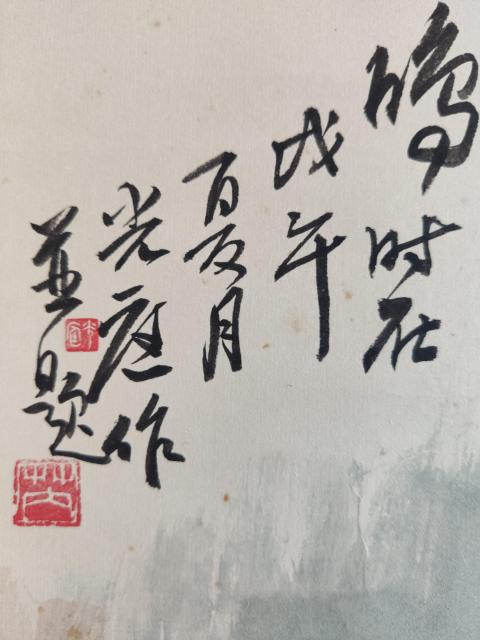 鸣时在
戊午
夏月
光庭作
並题